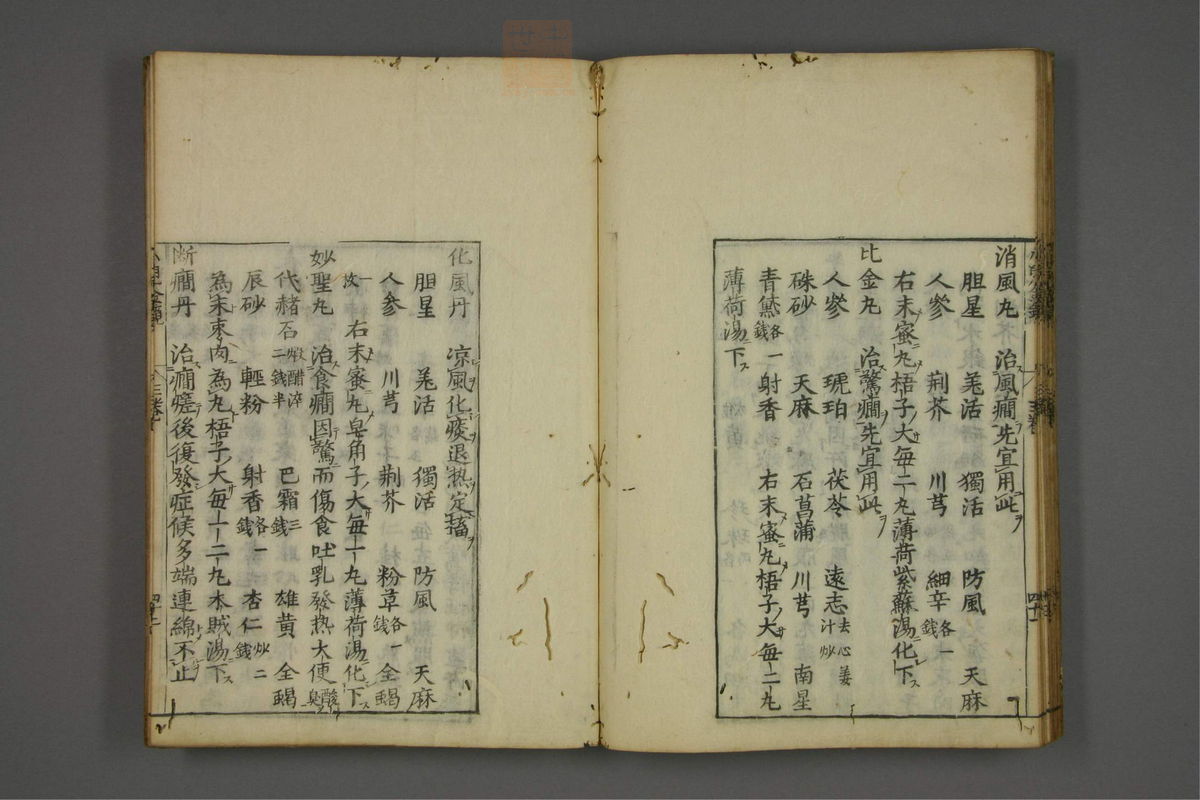 消風丸 治風癇先宜用此ヲ
胆星 羌活 獨活 防風 天麻
人參 荆芥 川芎 細辛各一錢
右末蜜丸梧子大毎二丸薄荷紫蘇湯化下
比金丸 治驚癇先宜用此ヲ
人參 琥珀 茯苓 遠志去心姜汁炒
硃砂 天麻 石菖蒲 川芎 南星
青黛各一錢 射香 右末蜜丸梧子大毎一二丸
薄荷湯下ス
化風丹 凉風化痰退热定搐ヲ
胆星 羌活 獨活 防風 天麻
人參 川芎 荆芥 粉草各一錢 全蝎
一枚 右末蜜丸皂角子大毎一丸薄荷湯化下ス
妙聖丸 治食癇因驚而傷食吐乳發热大便酸臭
代赭石煅醋淬二錢半 巴霜三錢 雄黄 全蝎
辰砂 輕粉 射香各一錢 杏仁炒二錢
為末枣肉為丸梧子大毎一二丸木賊湯下ス
断癇丹 治癇瘥後復發症候多端連綿不止